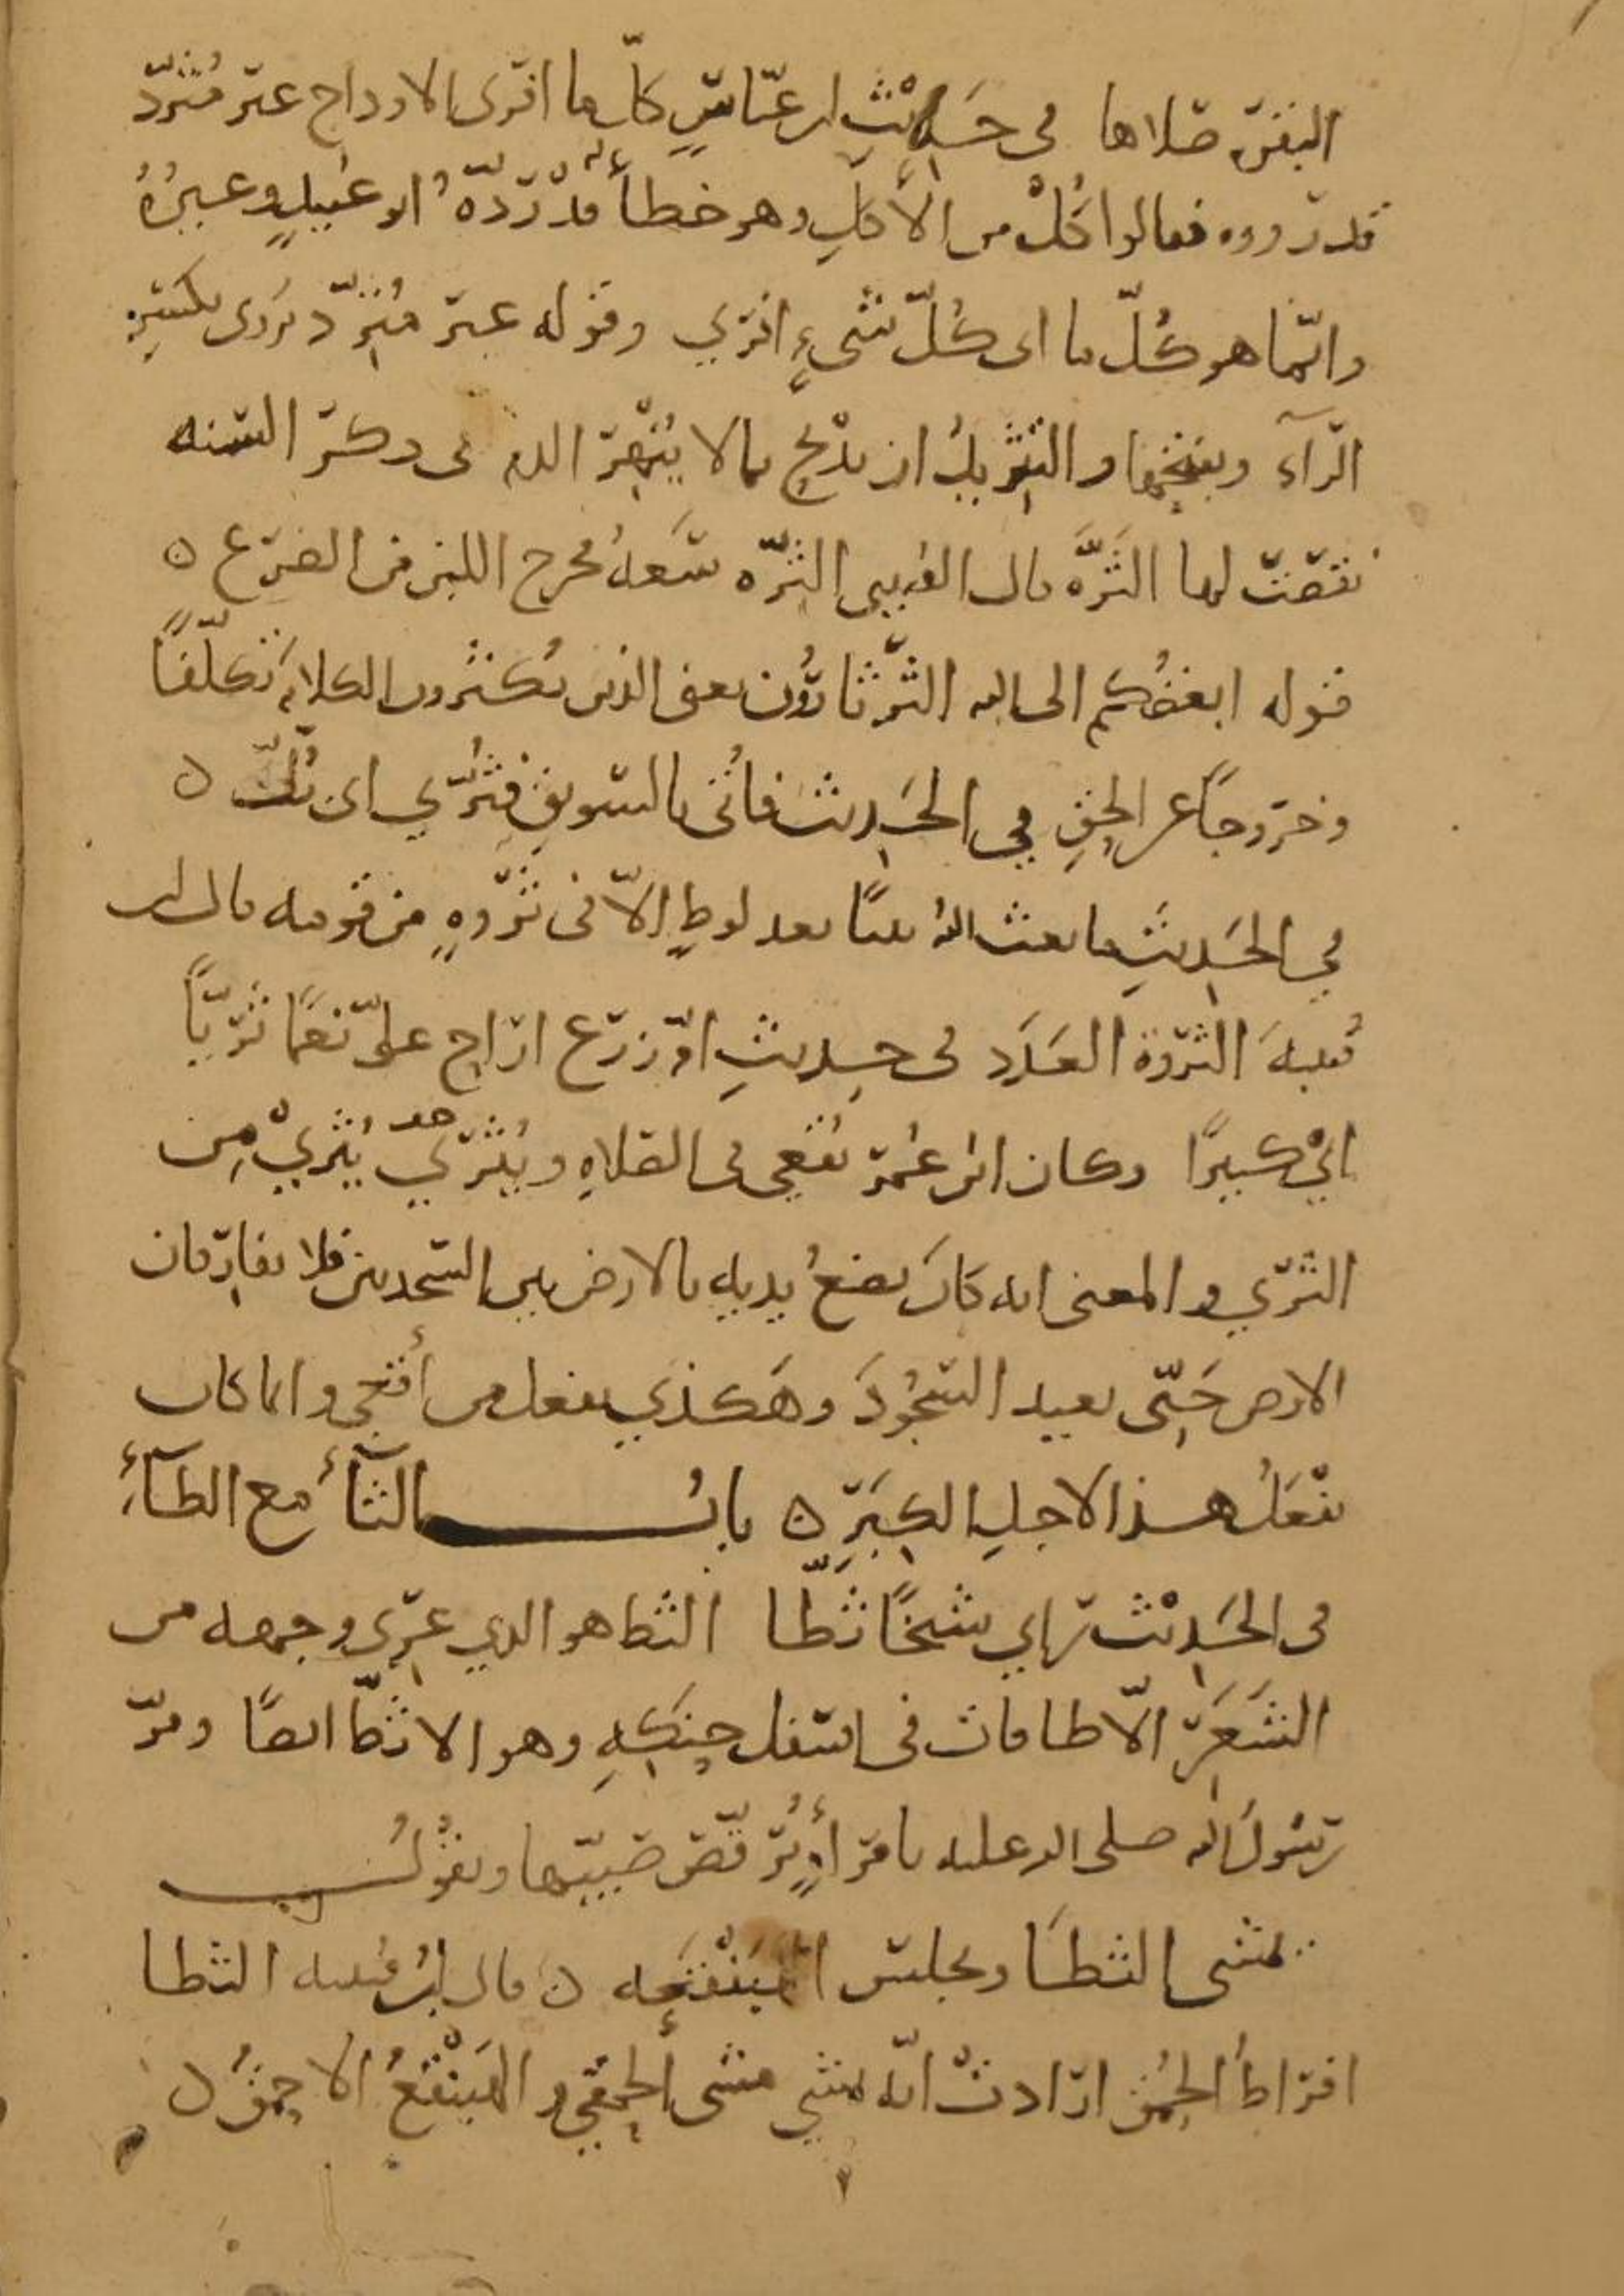 البقر صلاها في حَدِيْثِ ابن عبّاسٍ كلّ ما افرى الاوداج غير مُثَرِّد
قد رووه فقالوا كُلْ من الأكلِ وهو خطأ قد رَدّهُ ابو عُبيدٍ وغيرُهُ
وانّما هو كُلّ ما اى كُلّ شىءٍ افرَي وقوله غير مُثَرِّد يُروَى بكسرِ
الرّآء وبفتحها والتثريدُ ان يذبح بما لا يُنْهِرُ الدم فى ذكر السنه
نقصت لها الثَرَّه قال القتيبى الثرّه سَعَةُ مخرج اللبن من الضرع ه
قوله ابغضُكم الى الله الثّرثارُون يعنى الذين يُكثرون الكلام تكلّفًا
وخروجاً عن الحقِ في الحَدِيث فاتُى بالسويقِ فثُرِّي اى بُلَّ ه
في الحَديثِ ما بعث اللهُ نبيًا بعد لوطٍ الاّ فى ثَرْوهٍ من قومه قال ابن
قُتيبهَ الثروة العَدَد فى حديثِ امّ زرع اراح علىّ نعَمًا ثَرِيّاً
ايْ كثيرًا وكان ابن عُمَر يُقعِي فى الصلاهِ ويُثرّي هو يُثريْ مِن
الثرَي والمعنى انه كان يضعُ يديه بالارض بين السجدتين فلا يفارقان
الارض حَتّى يعيد السّجُودَ وهَكذَي يفعل من أقعي وانما كان
يفعَلُ هذا لاجلِ الكِبَرِ ه بابُ الثآء مع الطآءِ
فى الحَدِيْث رأي شيخًا ثطّا الثط هو الذي عَرِىَ وجهه من
الشَعَرِ الاّ طاقات فى اسفل حنكِهِ وهو الاثطّ ايضًا ومرّ
رسُولُ الله صلى الله عليه بامرأةٍ تُرقّص صبيّها وتقُولُ
يمشى الثطا ويجلس الهَبَنْقَعه ه قال ابنُ قتيبه الثطا
افراطُ الحُمْق ارادتْ انّه يمشي مشى الحمقَي والهَبَنْقَعُ الاحمَقُ ه